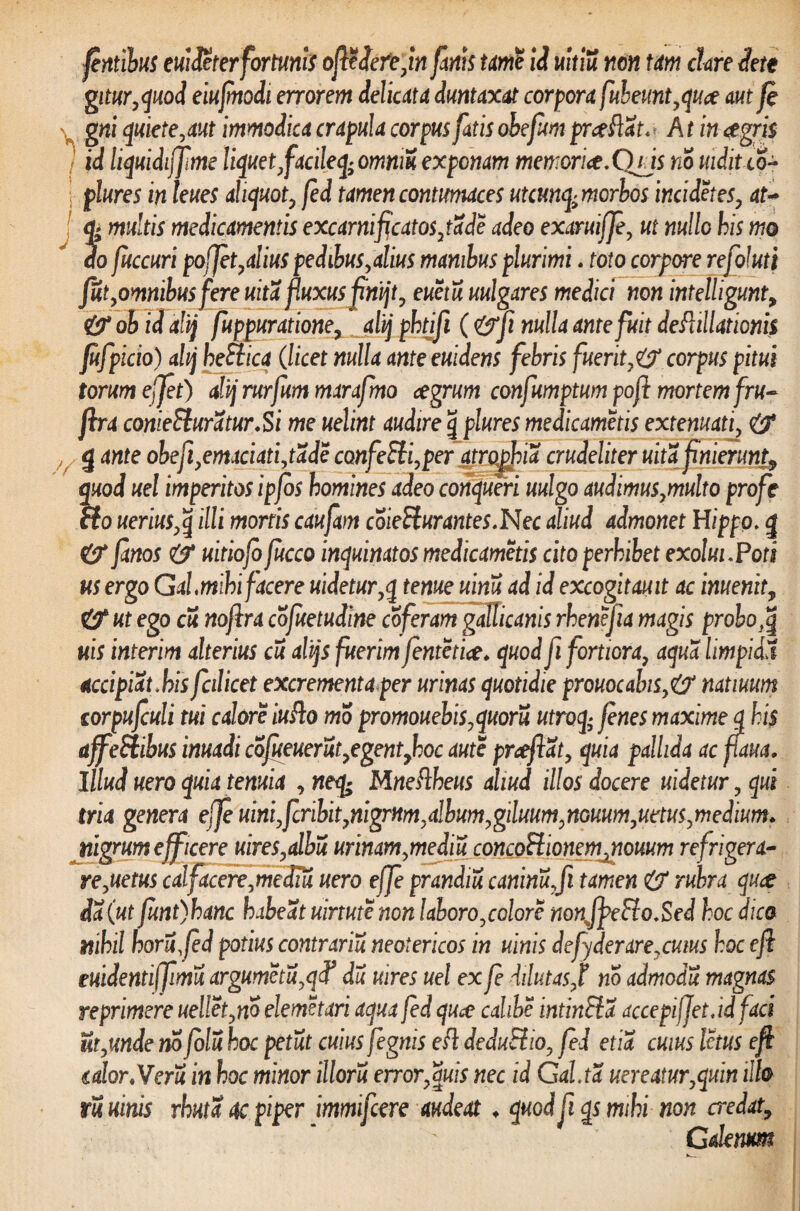 sentibus euidēter fortunis ostēdere,in sanis tamē id uitiū non tam clare dete
gitur,quod eiusmodi errorem delicata duntaxat corpora subeunt,quæ aut se
gni quiete,aut immodica crapula corpus satis obesum præstāt. At in ægris
id liquidissime liquet,facileq; omniū exponam memoriæ.Quis nō uidit cō-
plures in leues aliquot, sed tamen contumaces utcunq; morbos incidētes, at-
q; multis medicamentis excarnificatos,tādē adeo exaruisse, ut nullo his mo
do succuri posset,alius pedibus,alius manibus plurimi. toto corpore resoluti
sūt,omnibus fere uitā fluxus finijt, euētū uulgares medici non intelligunt,
& ob id alij suppuratione, alij phtisi (& si nulla ante fuit destillationis
suspicio) alij hectica (licet nulla ante euidens febris fuerit,& corpus pitui
torum esset) alij rursum marasmo ægrum consumptum post mortem fru-
stra coniecturātur.Si me uelint audire q̄ plures medicamētis extenuati, &
q̄ ante obesi,emaciati,tādē confecti,per atrophiā crudeliter uitā finierunt,
quod uel imperitos ipsos homines adeo conqueri uulgo audimus,multo profe
cto uerius,q̄ illi mortis causam cōiecturantes.Nec aliud admonet Hippo. q̄
& sanos & uitioso succo inquinatos medicamētis cito perhibet exolui.Poti
us ergo Gal.mihi facere uidetur,q̄ tenue uinū ad id excogitauit ac inuenit,
& ut ego cū nostra cōsuetudine cōferam gallicanis rhenēsia magis probo,q̄
uis interim alterius cū alijs fuerim sentētiæ. quod si fortiora, aquā limpidā
accipiāt.his scilicet excrementa per urinas quotidie prouocabis,& natiuum
corpusculi tui calorē iusto mō promouebis,quorū utroq; senes maxime q̄ his
affectibus inuadi cōsueuerūt,egent,hoc autē præstāt, quia pallida ac flaua.
Illud uero quia tenuia , neq; Mnestheus aliud illos docere uidetur, qui
tria genera esse uini,scribit,nigrum,album,giluum,nouum,uetus,medium.
nigrum efficere uires,albū urinam,mediū concoctionem,nouum refrigera-
re,uetus calfacere,mediū uero esse prandiū caninū,si tamen & rubra quæ
dā (ut sunt)hanc habeāt uirtutē non laboro,colorē non specto.Sed hoc dico
nihil horū,sed potius contrariū neotericos in uinis desyderare,cuius hoc est
euidentissimū argumētū,qđ dū uires uel ex se dilutas,l̄ nō admodū magnas
reprimere uellēt,nō elemētari aqua sed quæ calibe intinctā accepisset.id faci
ūt,unde nō solū hoc petūt cuius segnis est deductio, sed etiā cuius lētus est
calor.Verū in hoc minor illorū error,quis nec id Gal.tā uereatur,quin illo
rū uinis rhutā ac piper immiscere audeat . quod si qs mihi non credat,
Galenum